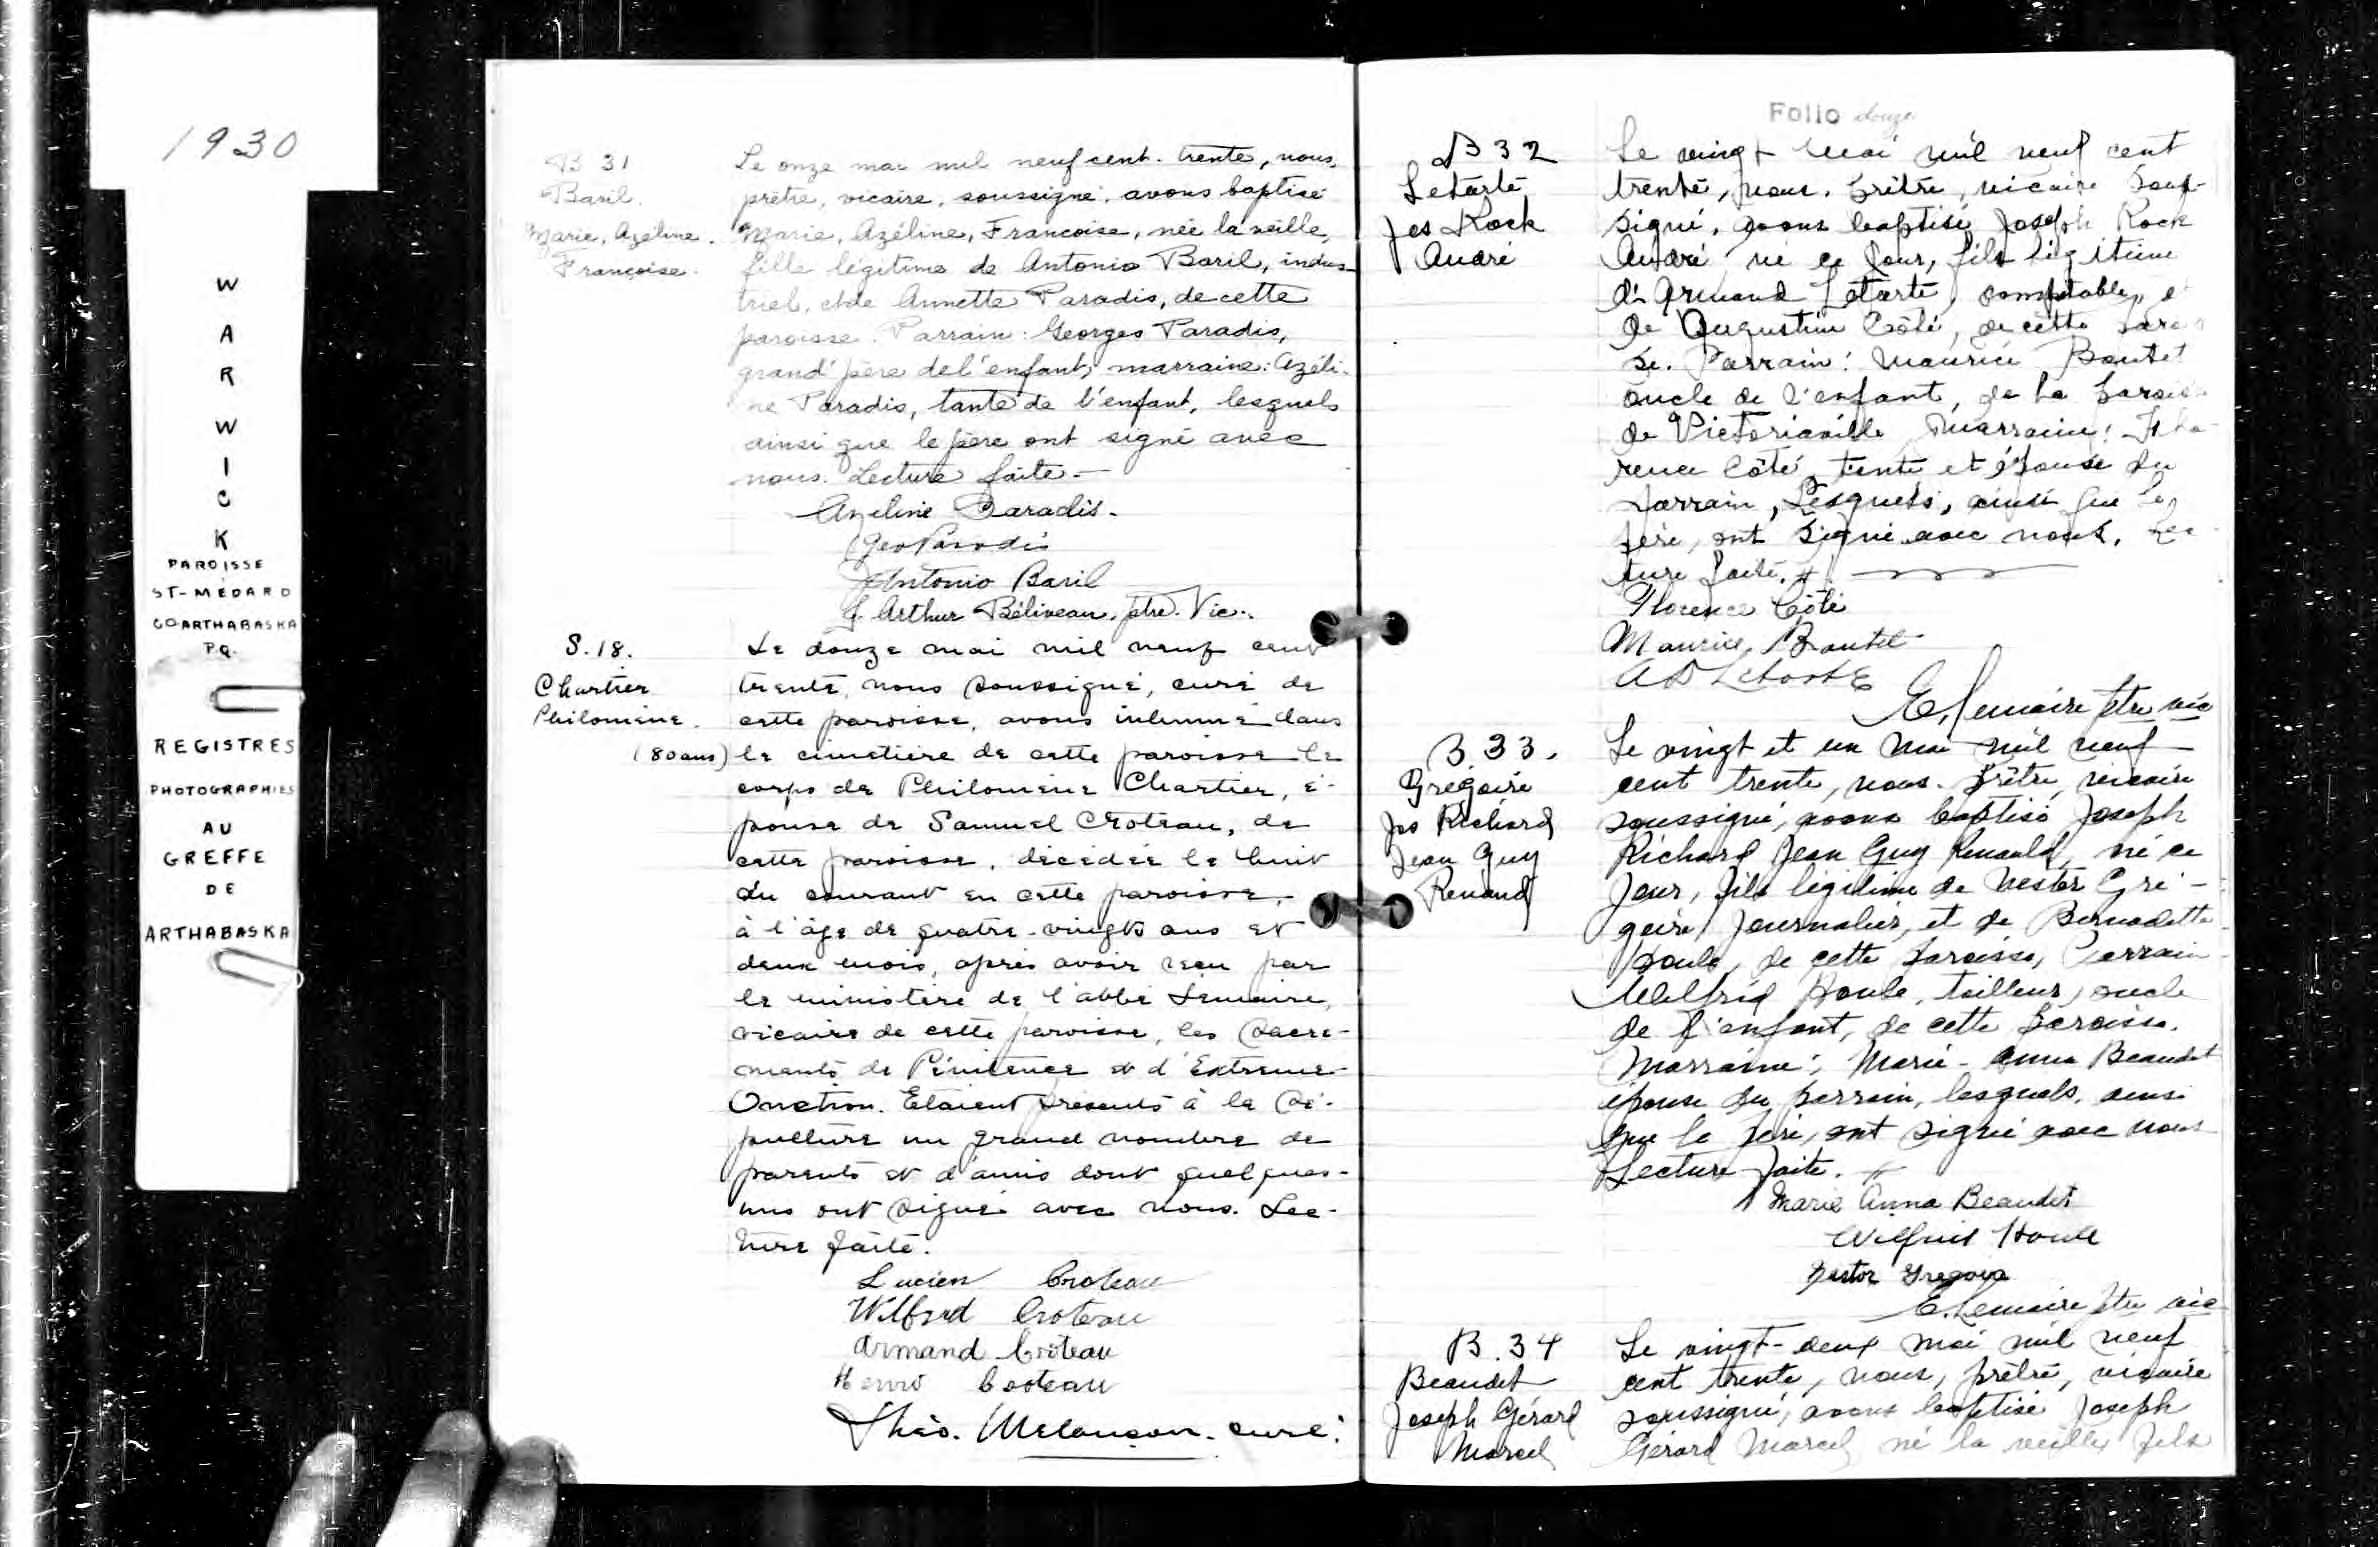 1930
W
A
R
W
I
C
K
PAROISSE
ST-MÉDARD
CO ARTHABASKA
P.Q.
REGISTRES
PHOTOGRAPHIES
AU
GREFFE
DE
ARTHABASKA
B 31
Baril.
Marie, Azéline.
Françoise.
Le onze mai mil neuf cent trente, nous,
prêtre, vicaire, soussigné, avons baptisé
Marie, Azéline, Francoise, née la veille,
fille légitime de Antonio Baril, indus-
triel, et de Annette Paradis, de cette
paroisse. Parrain: Georges Paradis,
grand'père de l'enfant, marraine: Azéli-
ne Paradis, tante de l'enfant, lesquels
ainsi que le père ont signé avec
nous. Lecture faite.—
Azeline Paradis.
Geo Paradis
Antonio Baril
J. Arthur Béliveau, ptre. Vic.
S. 18.
Chartier
Philomène.
(80 ans)
Le douze mai mil neuf cent
trente, nous soussigné, curé de
cette paroisse, avons inhumé dans
le cimetière de cette paroisse le
corps de Philomène Chartier, é-
pouse de Samuel Croteau, de
cette paroisse, décédée le huit
du courant en cette paroisse,
à l'âge de quatre-vingts ans et
deux mois, après avoir reçu par
le ministère de l'abbé Lemaire,
vicaire de cette paroisse, les Sacre-
ments de Pénitence et d'Extreme-
Onction. Etaient présents à la Sé-
pulture un grand nombre de
parents et d'amis dont quelques-
uns ont signé avec nous. Lec-
ture faite.
Lucien Croteau
Wilfrid Croteau
Armand Croteau
Henri Croteau
Théo. Melançon. curé.
Folio douze
B 32
Letarte
Jos Rock
André
Le vingt mai mil neuf cent
trente, nous, prêtre, vicaire sous-
signé, avons baptisé Joseph Rock
André né ce jour, fils légitime
d'Armand Letarte, comptable, et
de Augustine Côté, de cette parois
se. Parrain: Maurice Boutet
oncle de l'enfant, de la paroisse
de Victoriaville Marraine: Flo-
rence Côté, tante et épouse du
parrain, Lesquels, ainsi que le
père, ont signé avec nous. Lec
ture faite.
Florence Côté
Maurice Boutet
A D Letarte
E. Lemaire ptre vic
B 33.
Grégoire
Jos Richard
Jean Guy
Renaud
Le vingt et un mai mil neuf
cent trente, nous. prêtre, vicaire
soussigné, avons baptisé Joseph
Richard Jean Guy Renauld, né ce
jour, fils légitime de Nestor Gré-
goire, journalier, et de Bernadette
Houle, de cette paroisse, Parrain
Wilfrid Houle, tailleur, oncle
de l'enfant, de cette paroisse.
Marraine: Marie-Anna Beaudet
épouse du parrain, lesquels, ainsi
que le père, ont signé avec nous
Lecture faite.
Marie Anna Beaudet
Wilfrid Houle
Nestor Gregoire
E. Lemaire ptre vic
B. 34
Beaudet
Joseph Gérard
Marcel
Le vingt-deux mai mil neuf
cent trente, nous, prêtre, vicaire
soussigné, avons baptisé Joseph
Gérard Marcel né la veille, fils